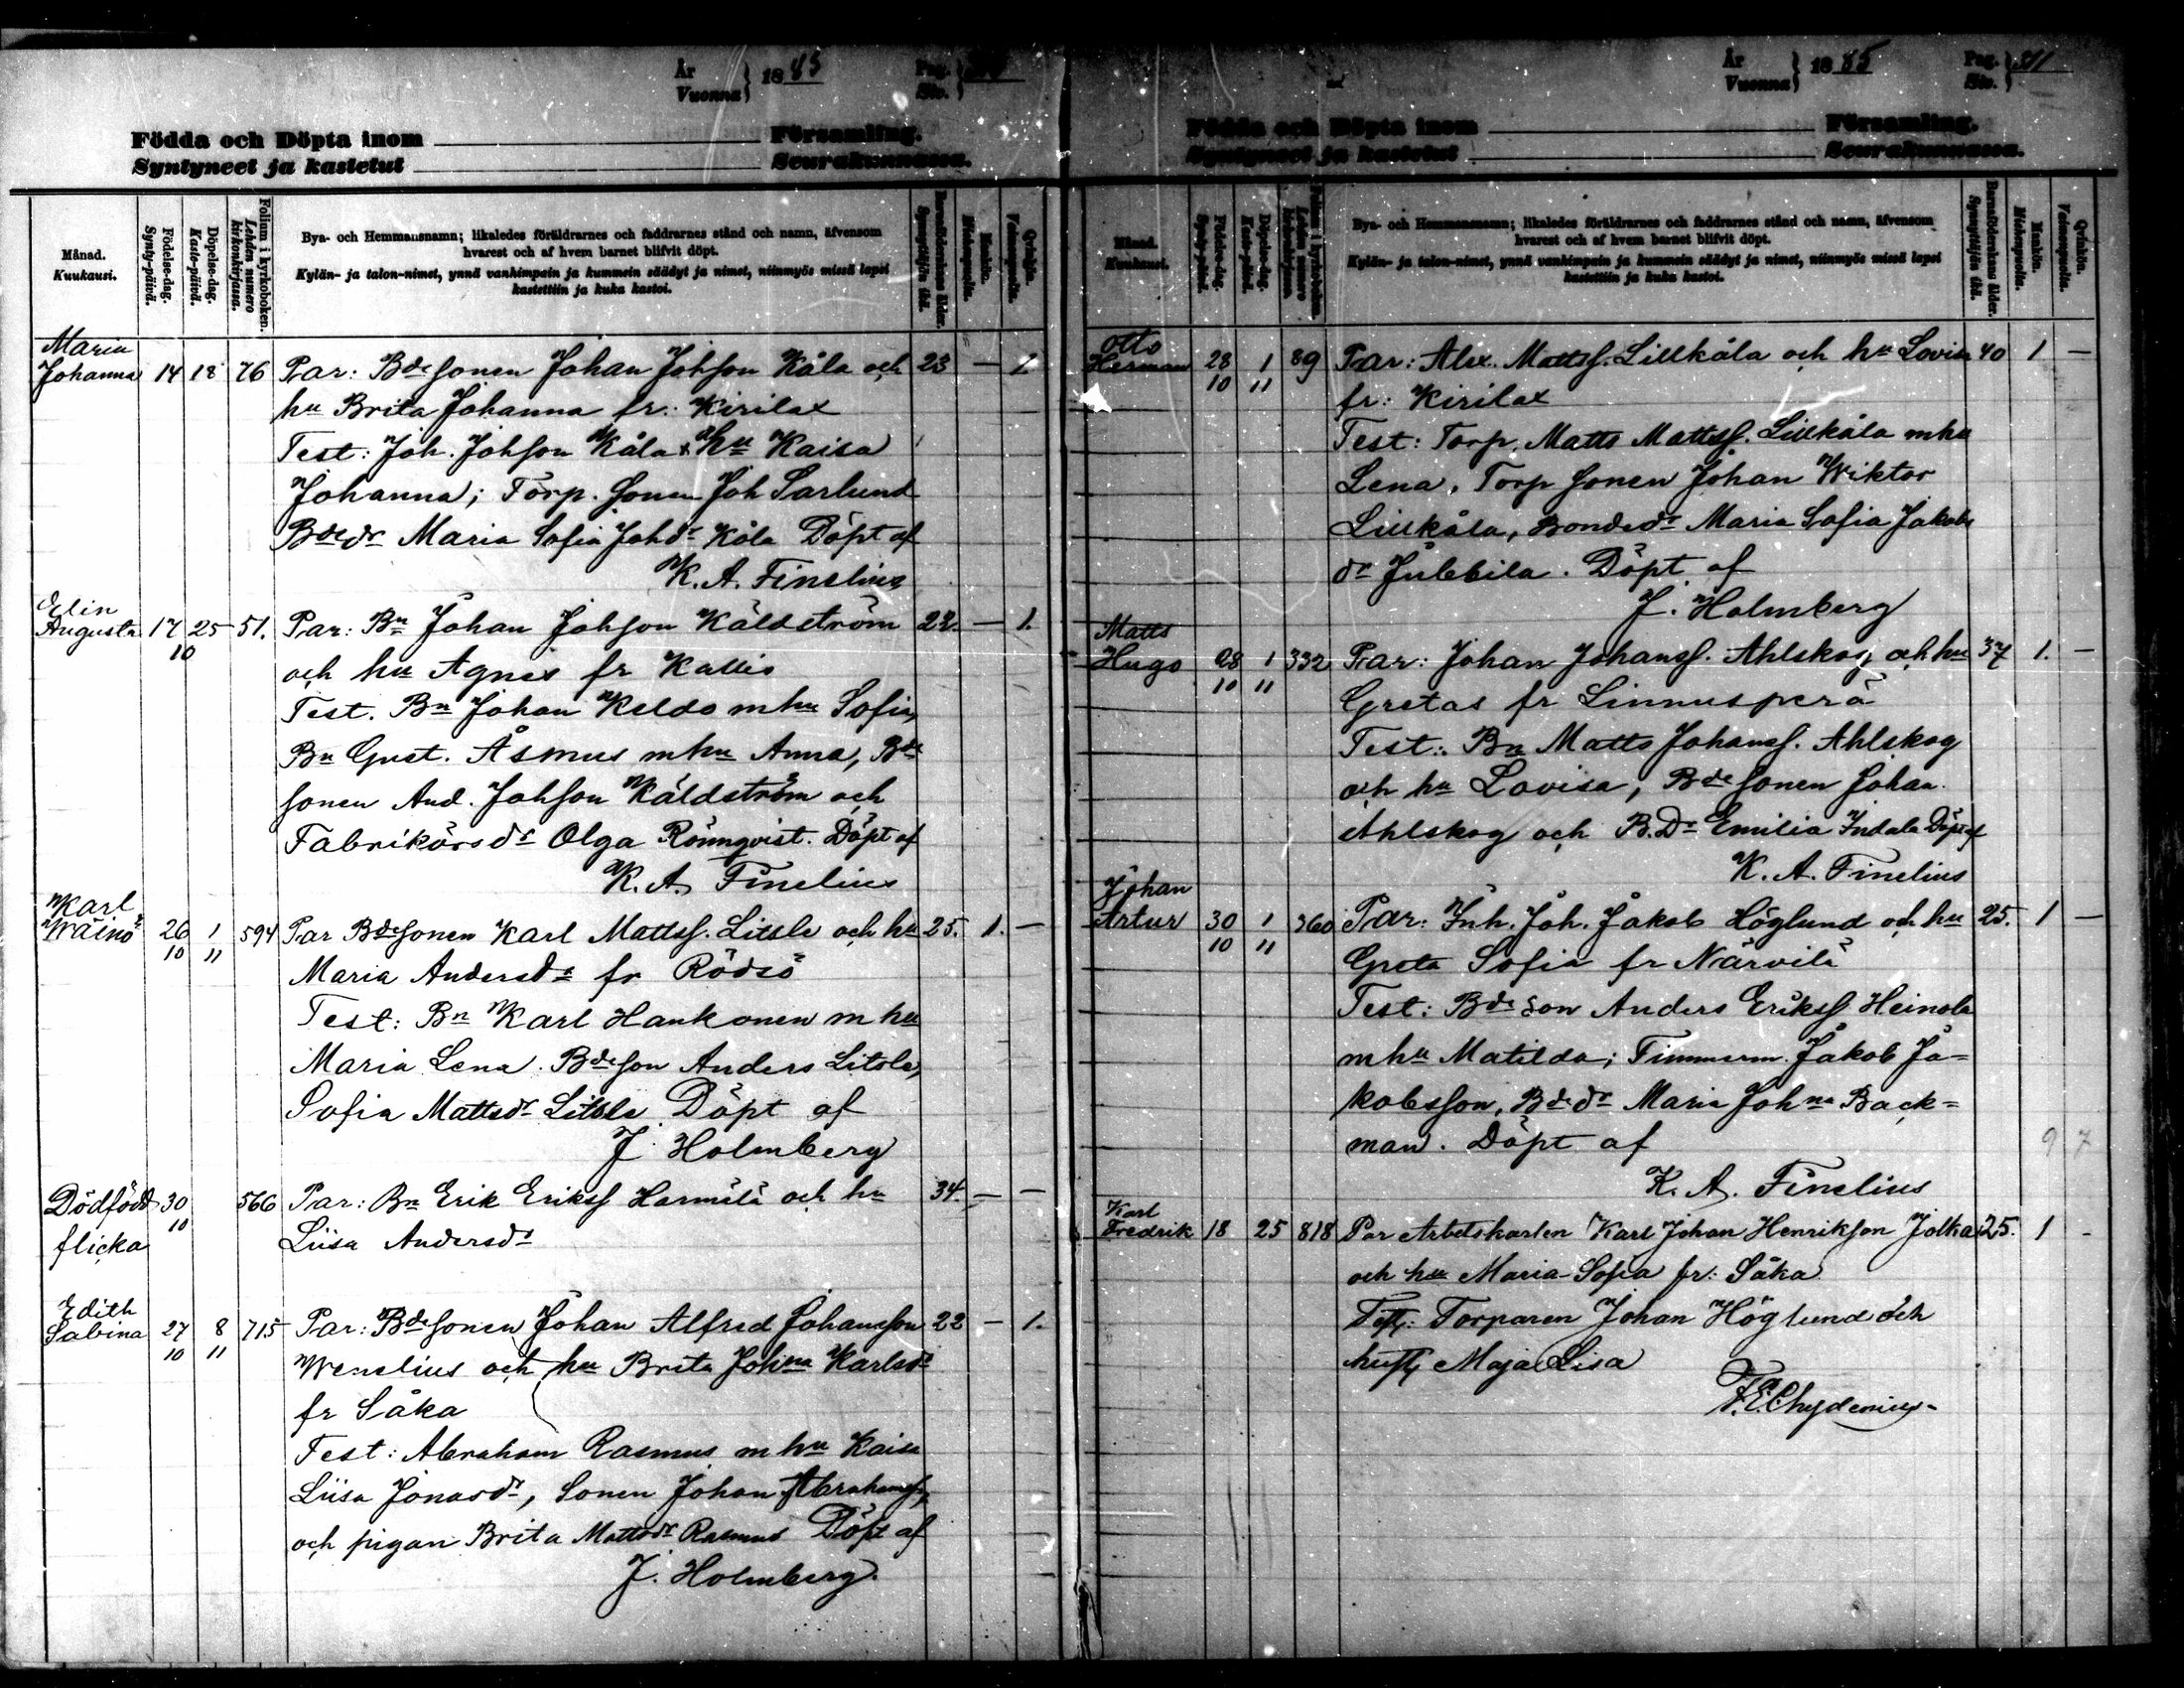 År
Vuonna } 1885
Pag.
Siv.
Födda och Döpta inom Församling.
Syntyneet ja kastetut Seurakunnassa.
Månad.
Kuukausi.
Födelse-dag.
Synty-päivä.
Döpelse-dag.
Kaste-päivä.
Folium i kyrkoboken.
Lehden numero kirkonkirjassa.
Bya- och Hemmansnamn; likaledes föräldrarnes och faddrarnes stånd och namn, äfvensom
hvarest och af hvem barnet blifvit döpt.
Kylän- ja talon-nimet, ynnä vanhimpain ja kummein säädyt ja nimet, niinmyös missä lapsi
kastettiin ja kuka kastoi.
Barnaföderskans ålder.
Synnyttäjän ikä.
Mankön.
Miehenpuolia.
Qvinkön.
Vaimonpuolia.
Maria
Johanna 14 18 76 Par: Bde sonen Johan Johsson Kåla och 23 — 1
hu Brita Johanna fr: Kirilax
Test: Joh. Johsson Kåla & hu Kaisa
Johanna; Torp. sonen Joh Sarlund
Bdedr Maria Sofia Johdr Kåla Döpt af
K. A. Finelius
Elin
Augusta 17 25 51. Par: Bn Johan Johsson Käldström 22. — 1.
10
och hu Agnes fr Kallis
Test. Bn Johan Keldo m hu Sofia,
Bn Gust. Åsmus m hu Anna, Bde
sonen And. Johsson Käldström och
Fabrikörsdr Olga Rönnqvist. Döpt af
K. A. Finelius
Karl
Wäinö 26 1 594 Par Bdesonen Karl Mattss. Litsle och hu 25. 1. —
10 11
Maria Andersdr fr Rödsö
Test: Bn Karl Hankonen m hu
Maria Lena. Bdeson Anders Litsle,
Sofia Mattsdr Litsle Döpt af
J. Holmberg
Dödfödd 30 566 Par: Bn Erik Erikss Harmälä och hu 34. — —
10
flicka Liisa Andersdr
Edith
Sabina 27 8 715 Par: Bdesonen Johan Alfred Johansson 22 — 1.
10 11
Wenelius och hu Brita Johna Karlsdr
fr Såka
Test: Abraham Rasmus m hu Kaisa
Liisa Jonasdr, Sonen Johan Abrahamss,
och pigan Brita Mattsdr Rasmus Döpt af
J. Holmberg.
År
Vuonna } 1885
Pag.
Siv. } 311
Födda och Döpta inom Församling.
Syntyneet ja kastetut Seurakunnassa.
Månad.
Kuukausi.
Födelse-dag.
Synty-päivä.
Döpelse-dag.
Kaste-päivä.
Folium i kyrkoboken.
Lehden numero kirkonkirjassa.
Bya- och Hemmansnamn; likaledes föräldrarnes och faddrarnes stånd och namn, äfvensom
hvarest och af hvem barnet blifvit döpt.
Kylän- ja talon-nimet, ynnä vanhimpain ja kummein säädyt ja nimet, niinmyös missä lapsi
kastettiin ja kuka kastoi.
Barnaföderskans ålder.
Synnyttäjän ikä.
Mankön.
Miehenpuolia.
Qvinkön.
Vaimonpuolia.
Otto
Herman 28 1 89 Par: Alex. Mattss. Lillkåla och hu Lovisa 40 1 —
10 11
fr: Kirilax
Test: Torp. Matts Mattss. Lillkåla m hu
Lena, Torp sonen Johan Wiktor
Lillkåla, Bondedr Maria Sofia Jakobs
dr Julkbila. Döpt af
J. Holmberg
Matts
Hugo 28 1 332 Par: Johan Johanss. Ahlskog och hu 37 1. —
10 11
Gretas fr Linnusperä
Test: Bn Matts Johanss. Ahlskog
och hu Lovisa, Bde sonen Johan
Ahlskog och B. Dr Emilia Indala Döpt af
K. A. Finelius
Johan
Artur 30 1 360 Par: Inh. Joh. Jakob Höglund och hu 25. 1 —
10 11
Greta Sofia fr Närvilä
Test: Bde son Anders Erikss Heinola
m hu Matilda; Timmerm. Jakob Ja=
kobsson, Bdedr Maria Johna Back=
man. Döpt af
9 7
K. A. Finelius
Karl
Fredrik 18 25 818 Par Arbetskarlen Karl Johan Henriksson Jolka 25. 1 -
och hu Maria Sofia fr: Såka
Test: Torparen Johan Höglund och
hust Maja Lisa
F. E. Chydenius